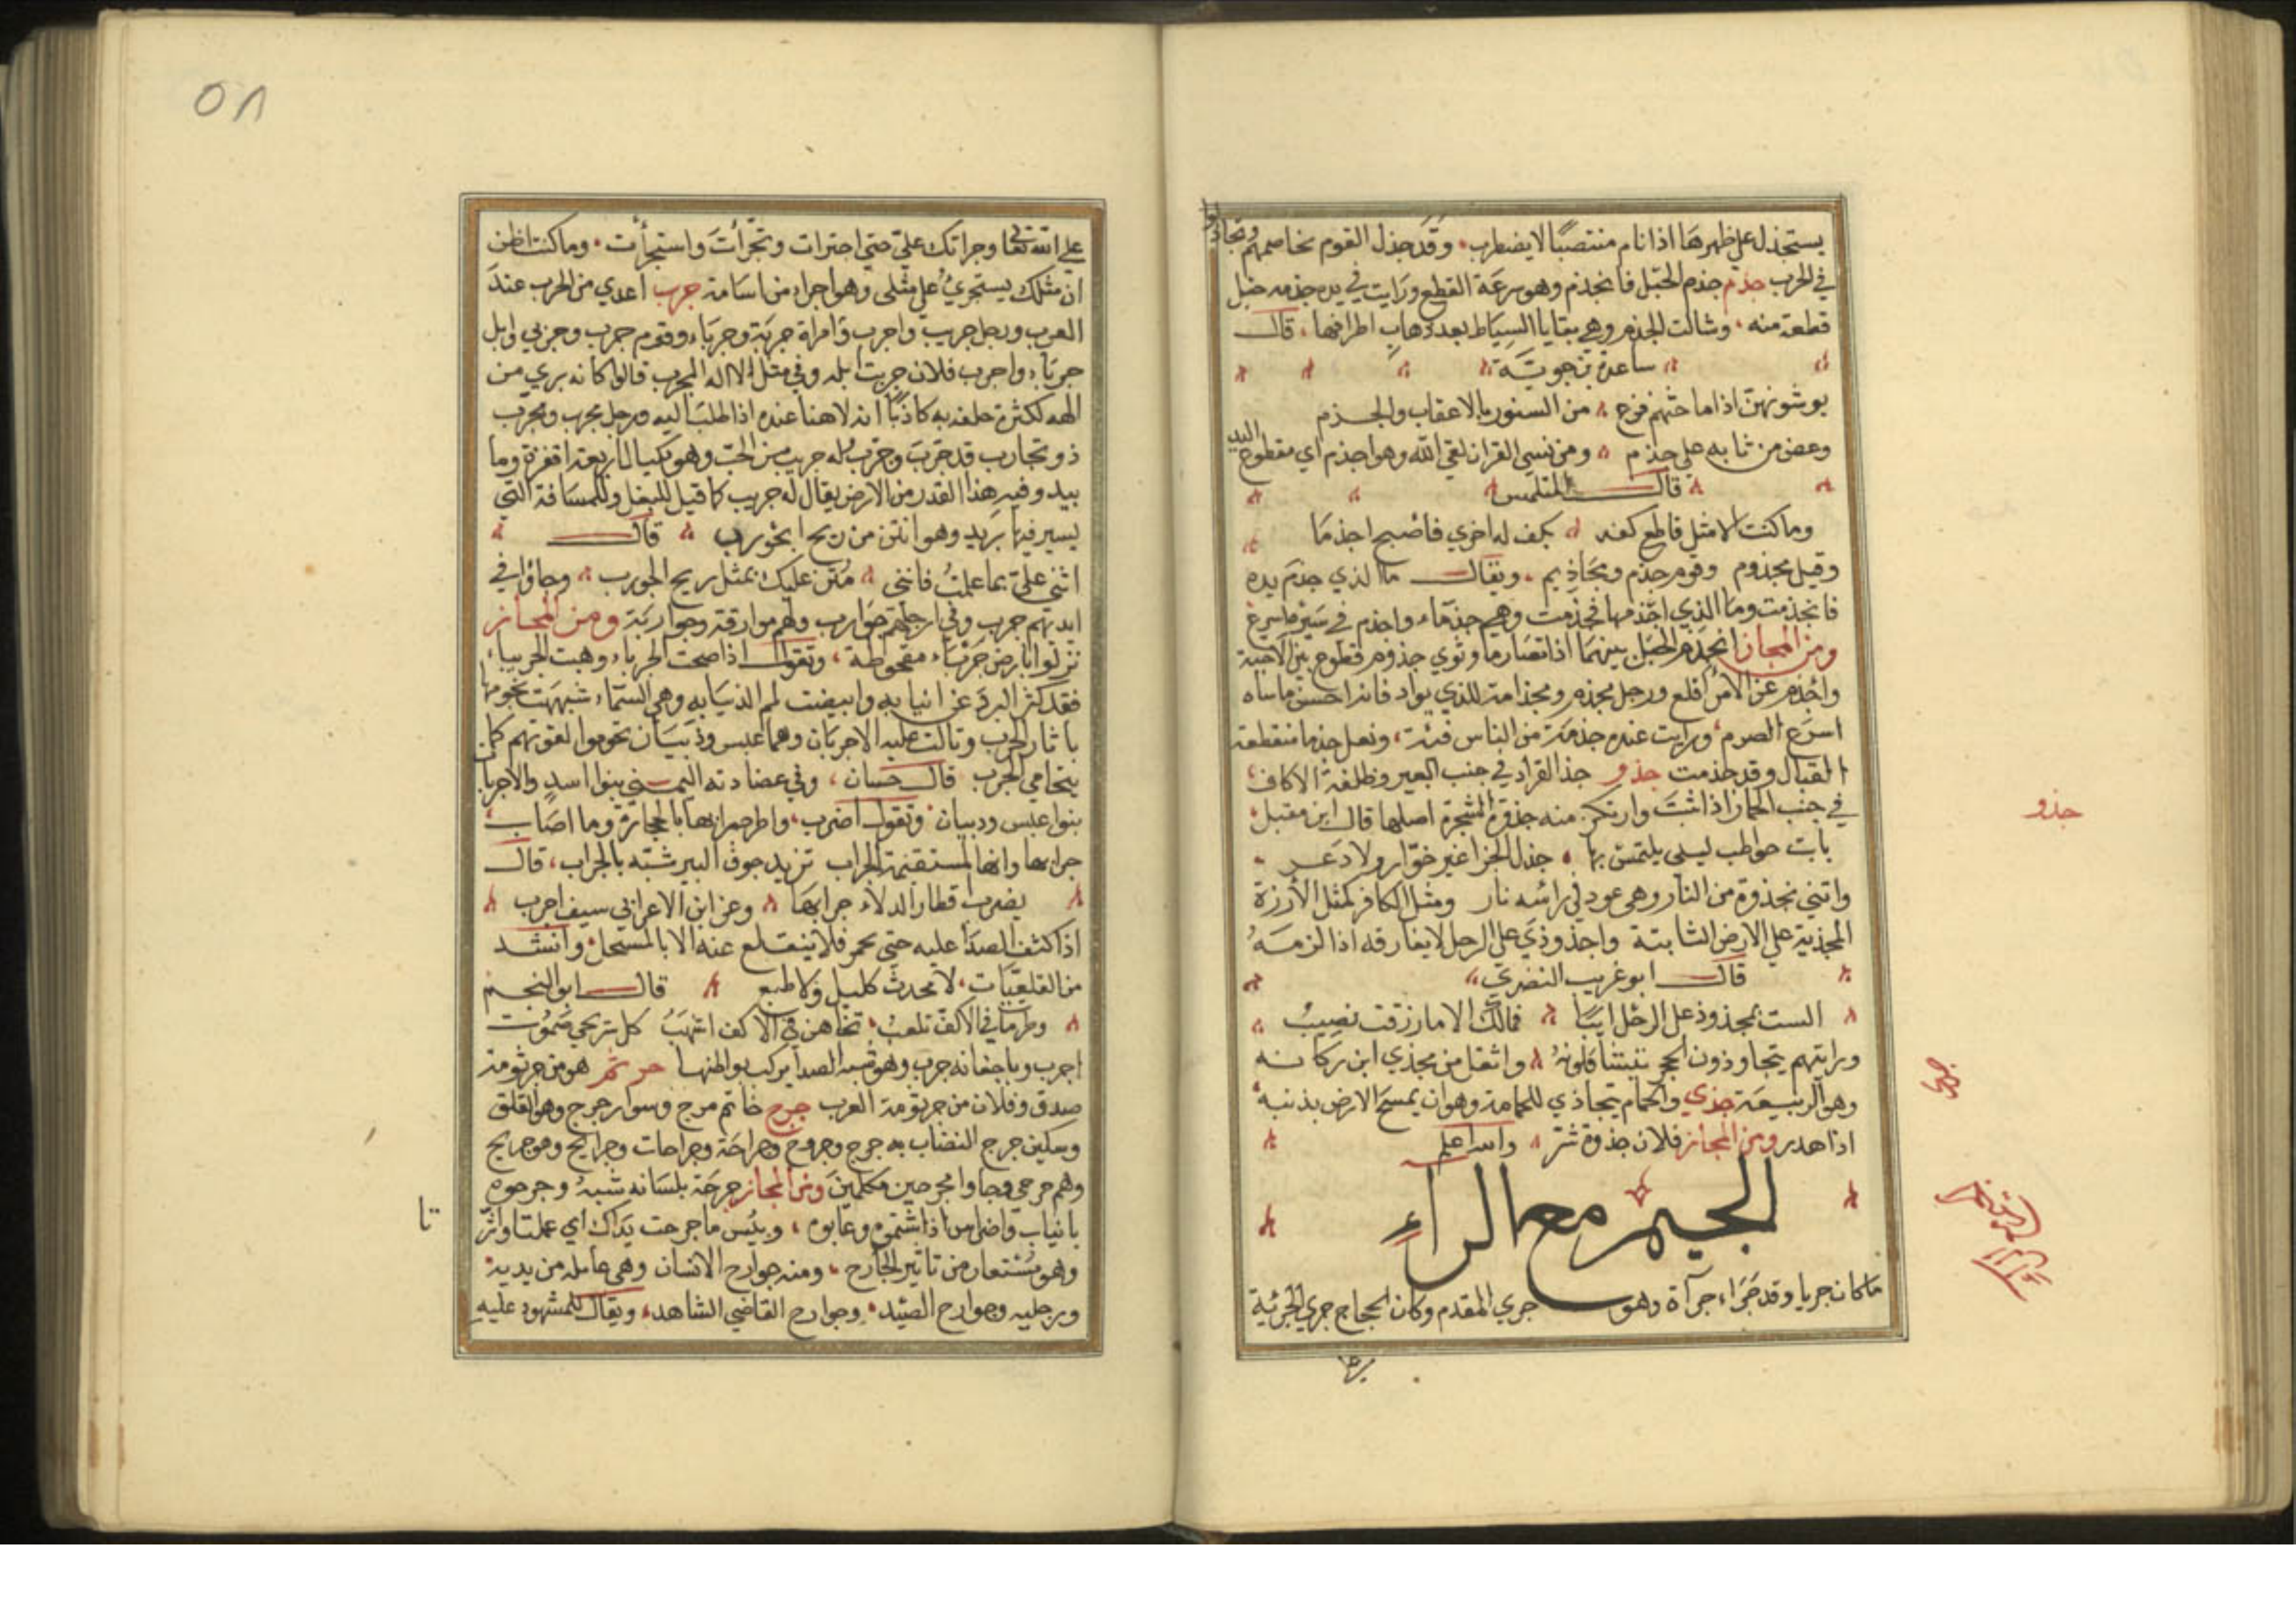 يستجذل على ظهرها اذا نام منتصبًا لا يضطرب، وقد جذل القوم نخاصمهم وتجاذلوا
في الحرب جذم جذم الحبل فانجذم وهو سرعة القطع ورايت في يده جذمه حبل
قطعة منه، وشالت الجذم وهي بقايا السياط بعد ذهاب اطرافها، قال
ساعدة بن جوية
يوشونهن اذا ما حثهم فزع من السنور بالاعقاب والجذم
وعض من نابه على جذم ومن نسي القران لقي الله وهو اجذم اي مقطوع اليد
قال المتلمس
وما كنت الا مثل قاطع كفه بكف له اخري فأصبح اجذما
وقيل مجذوم وقوم جذم ومجاذيم، ويقال ما الذي جذم يده
فانجذمت وما الذي اجذمها فجذمت وهي جذماء واجذم في سيره اسرع
ومن المجاز انجذم الحبل بينهما اذا تصارما ونوي جذوم قطوع بين الاحبة
واجذم عن الامر اقلع ورجل مجذم ومجذامة للذي يواد فاذا احس ما ساه
اسرع الصرم، ورايت عنده جذمة من الناس فئة، ونعل جذما منقطعة
القبال وقد جذمت جذو جذا القراد في جنب البعير وظلفة الاكاف
في جنب الحمار اذا اثبت وارتكز منه جذوة الشجرة اصلها قال ابن مقبل
باتت حواطب ليلى يلتمسن بها جذل الجزا غير خوار ولا دعر
واتني بجذوة من النار وهي عود في راسه نار ومثل الكافر كمثل الأرزة
المجذية على الارض الثابتة واجذوذي على الرحل لا يفارقه اذا لزمه
قال ابو غريب النضري
الست بمجذوذ على الرحل ايبًا فمالك الا ما رزقت نصيب
ورايتهم يتجاوذون الحجر يتشاقلونه واثقل من مجذي ابن ركانه
وهو الربيعة جذي والحمام يتجاذي للحمامة وهو ان يمسح الارض بذنبه
اذا هدر ومن المجاز فلان جذوة شر والله اعلم
الجيم مع الراء
ما كان جريا وقد جرء جرآة وهو جري المقدم وكان الحجاج جري الجرئية
جذو
جذي
٥٨
على الله تعا وجراتك علي حتي اجترات وتجرأت واستجرأت، وما كنت اظن
ان مثلك يستجري على مثلي وهو اجراء من اسامة جرب اعدي من الجرب عند
العرب ورجل جرب واجرب وامراة جربة وجرباء وقوم جرب وجربي وابل
جرباء واجرب فلان جربت ابله وفي مثل لا اله المجرب قالوا كانه بري من
الهه لكثرة حلفه به كاذبًا انه لا هنا عنده اذا طلب اليه ورجل مجرب ومجرب
ذو تجارب قد جرب وجرب وله جريب من الحب وهو مكيال اربعة اقفزة وما
يبدر فيه هذا القدر من الارض يقال له جريب كما قيل للبغل وللمسافة التي
يسير فيها بريد وهو انتن من ريح الجورب قال
اثني علي بما علمت فانني مثن عليك بمثل ريح الجورب وجاؤا في
ايديهم جرب وفي ارجلهم جوارب ولهم موارقة وجواربة ومن المجاز
نزلوا بارض جرباء مقحوطة، وتقول اذا صحت الجرباء وهبت الجربياء
فقد كشر البرد عن انيابه وابيضت لمم الدنيا به وهي السماء شبهت نجومها
باثار الجرب وتالت عليه الاجربان وهما عبس وذبيان تحوموا لقوتهم كما
يتحامي الجرب قال حسان، وفي عضادته اليمني بنوا اسد والاجربان
بنوا عبس ودبيان وتقول اضرب، واطر جرابها بالحجارة وما اصاب
جرابها وانها لمستقيمة الجراب تريد جوف البير شبه بالجراب، قال
يضرب اقطار الدلاء جرابها وعن ابن الاعرابي سيف اجرب
اذا كثف الصدأ عليه حتي يحمر فلا ينقلع عنه الا بالمسحل وانشد
من القلعيات، لا محدث كليل ولا طبع قال ابو النجم
وصارمات في الاكف تلعب، تخاهن في الاكف اشهب كل سريجي صموت
اجرب وباجفانه جرب وهو شبه الصدأ يركب بواطنها جرثم هو من جرثومة
صدق وفلان من جرثومة العرب جرج خاتم مرج وسوار جرج وهو القلق
وسكين جرج النصاب به جرح وجروح وجراحة وجراحات وجرايح وهو جريح
وهم جرحي وجاوا مجرحين مكلمين ومن المجاز جرحة بلسانه شبه وجرحوه
بانياب واضراس اذا شتموه وعابوه، وبئس ما جرحت يداك اي عملتا واثرتا
وهو مستعار من تاثير الجارح، ومنه جوارح الانسان وهي عامله من يديه
ورجليه وجوارح الصيد، وجوارح القاضي الشاهد، ويقال للمشهود عليه